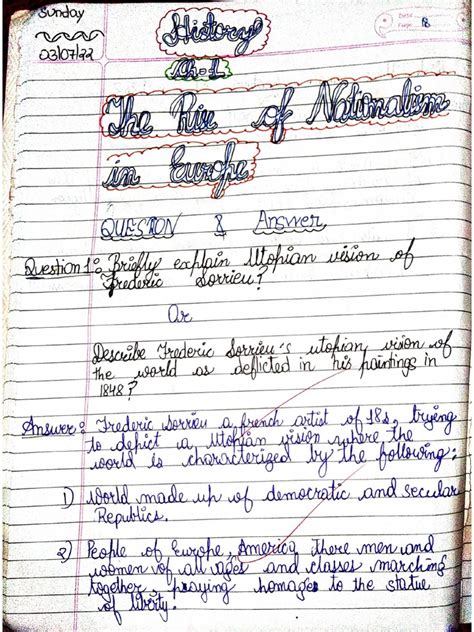 Sunday
03/07/22
Date
Page 18
History
Ch-1
The Rise of Nationalism
in Europe
QUESTION & Answer
Question 1: Briefly explain Utopian vision of
Frederic Sorrieu?
Or
Describe Frederic Sorrieu's utopian vision of
the world as deficted in his paintings in
1848?
Answer: Frederic Sorrieu a french artist of 18s, trying
to depict a Utopian vision where the
world is characterized by the following:
1) World made up of democratic and secular
Republics.
2) People of Europe, America there men and
women of all ages and classes marching
together, paying homages to the statue
of liberty.